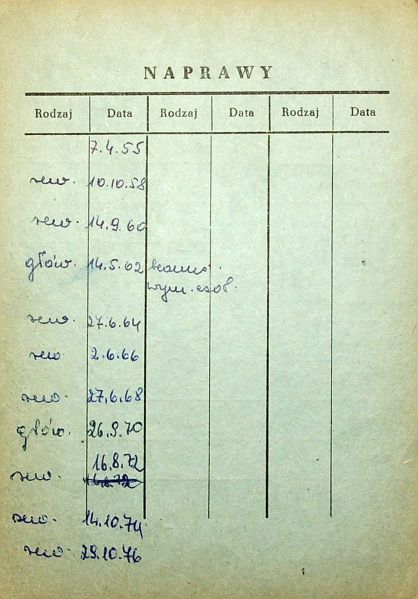 NAPRAWY
Rodzaj Data Rodzaj Data Rodzaj Data
7.4.55
rew. 10.10.58
rew. 14.9.60
głów. 14.5.62
wym. czoł.
rew. 27.6.64
rew. 2.6.66
rew. 27.6.68
głów. 26.9.70
16.8.72
rew.
rew. 14.10.74
rew. 29.10.76